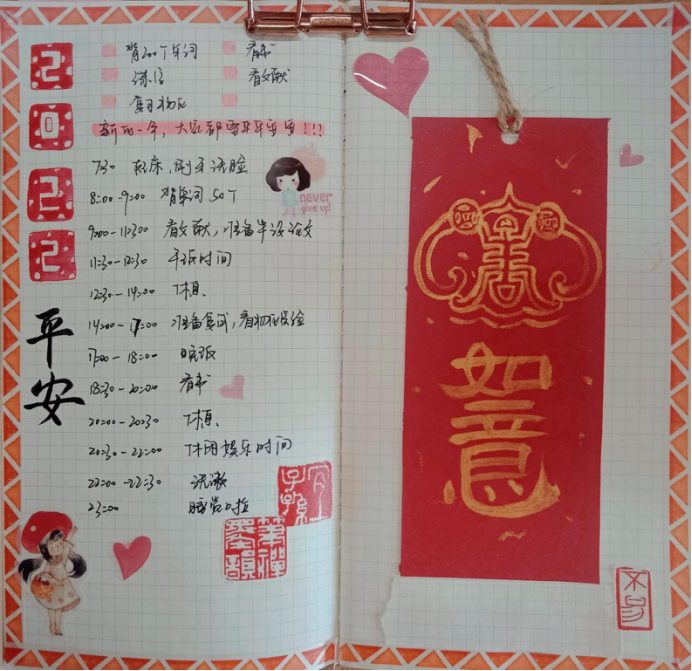 2022
背200个单词
看书
练字
看文献
复习物化
新的一年，大家都要平平安安！！！
7:30 起床，刷牙洗脸
8:00-9:00 背单词 50个
never
give up!
9:00-11:300 看文献，准备毕设论文
11:30-12:30 午饭时间
12:30-14:00 休息
14:00-17:00 准备复试，看物化实验
17:00-18:00 晚饭
18:30-20:00 看书
20:00-20:30 休息
20:30-22:00 休闲娱乐时间
22:00-22:30 洗漱
23:00 睡觉啦
平安
宜子孙
笔禅墨韵
如意